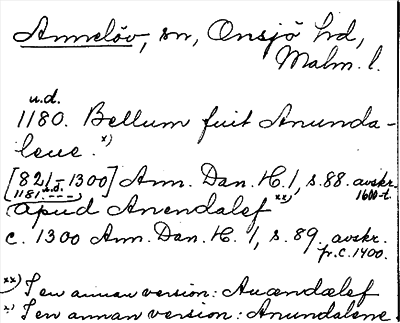 Annelöv, sn, Onsjö hd,
Malm. l.
u.d.
1180. Bellum fuit Anunda-
leue. x)
[821-1300] Ann. Dan. H. 1, s. 88. avskr.
1181 u.d. - - - 1600-t.
apud Anendalef xx)
c. 1300 Ann. Dan. H. 1, s. 89. avskr.
fr. c. 1400.
xx) I en annan version: Auændælef
x) I en annan version: Anundalene